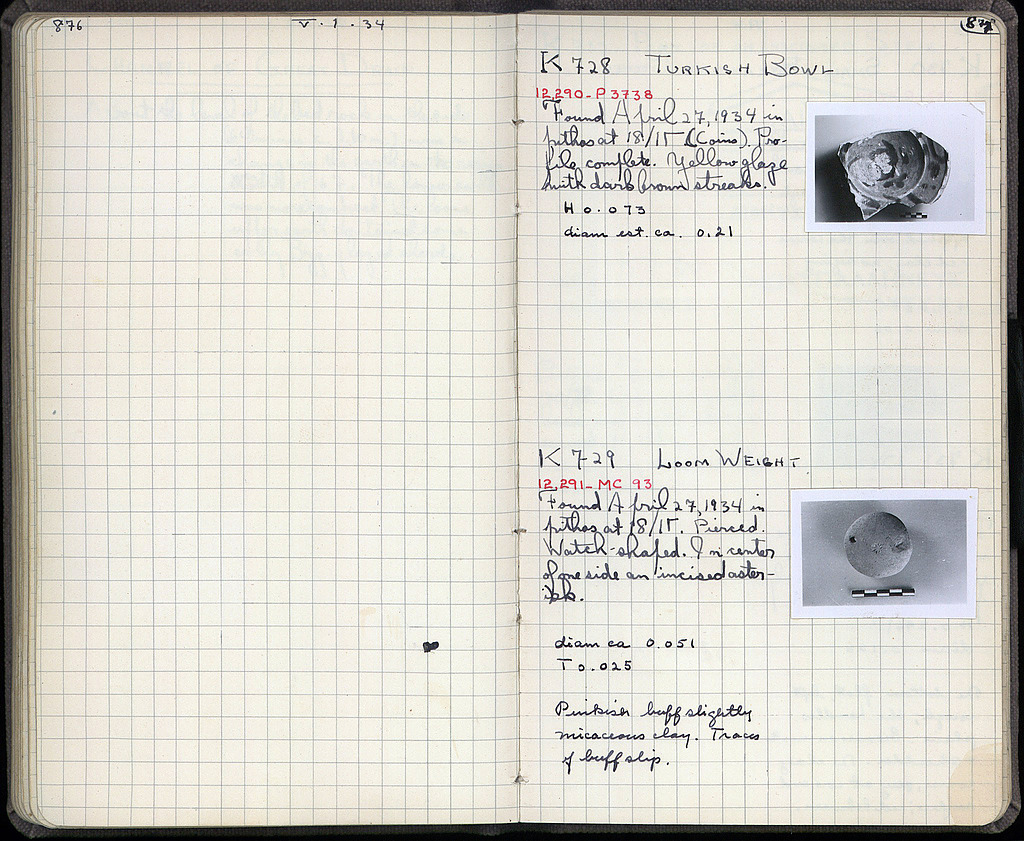 876
V · 1 · 34
877
K 728 TURKISH BOWL
12,290 - P 3738
Found April 27, 1934 in
pithos at 18/ΙΓ (Coins). Pro-
file complete. Yellow glaze
with dark brown streaks.
H 0.073
diam est. ca. 0.21
K 729 LOOM WEIGHT
12,291 - MC 93
Found April 27, 1934 in
pithos at 18/ΙΓ. Pierced.
Watch-shaped. In center
of one side an incised aster-
isk.
diam ca 0.051
T 0.025
Pinkish buff slightly
micaceous clay. Traces
of buff slip.